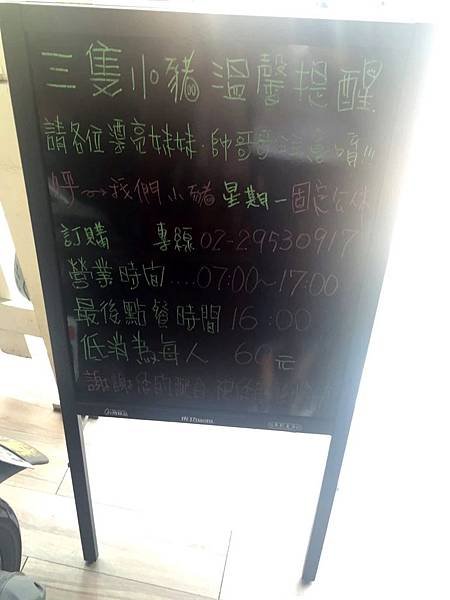 三隻小豬溫馨提醒
請各位漂亮妹妹.帥哥哥注意唷!!!
呼~~我們小豬星期一固定公休
訂購 專線 02-29530917
營業時間....07:00~17:00
最後點餐時間 16:00
低消為每人 60元
謝謝您的配合